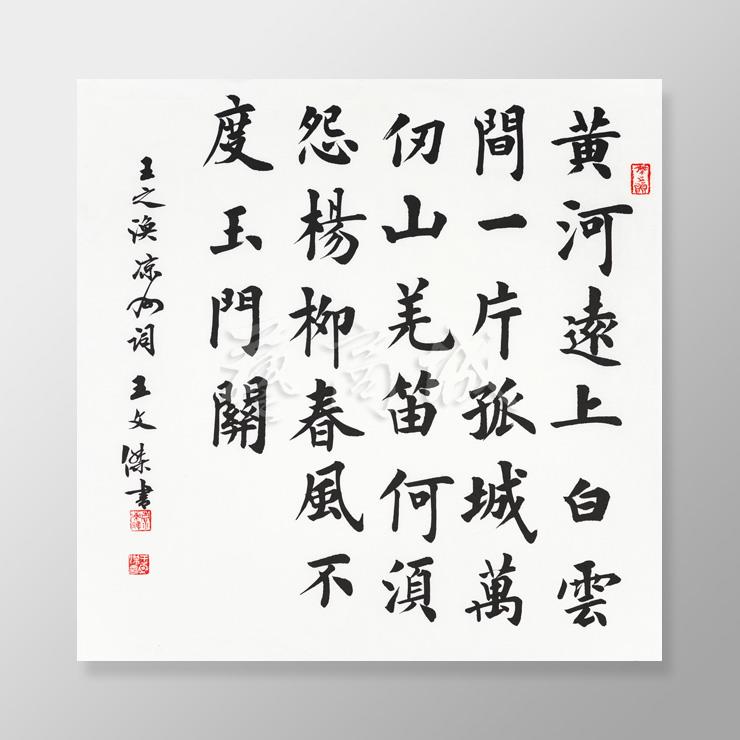 黄河遠上白雲
間一片孤城萬
仞山羌笛何須
怨楊柳春風不
度玉門關
王之渙凉州词 王文傑書